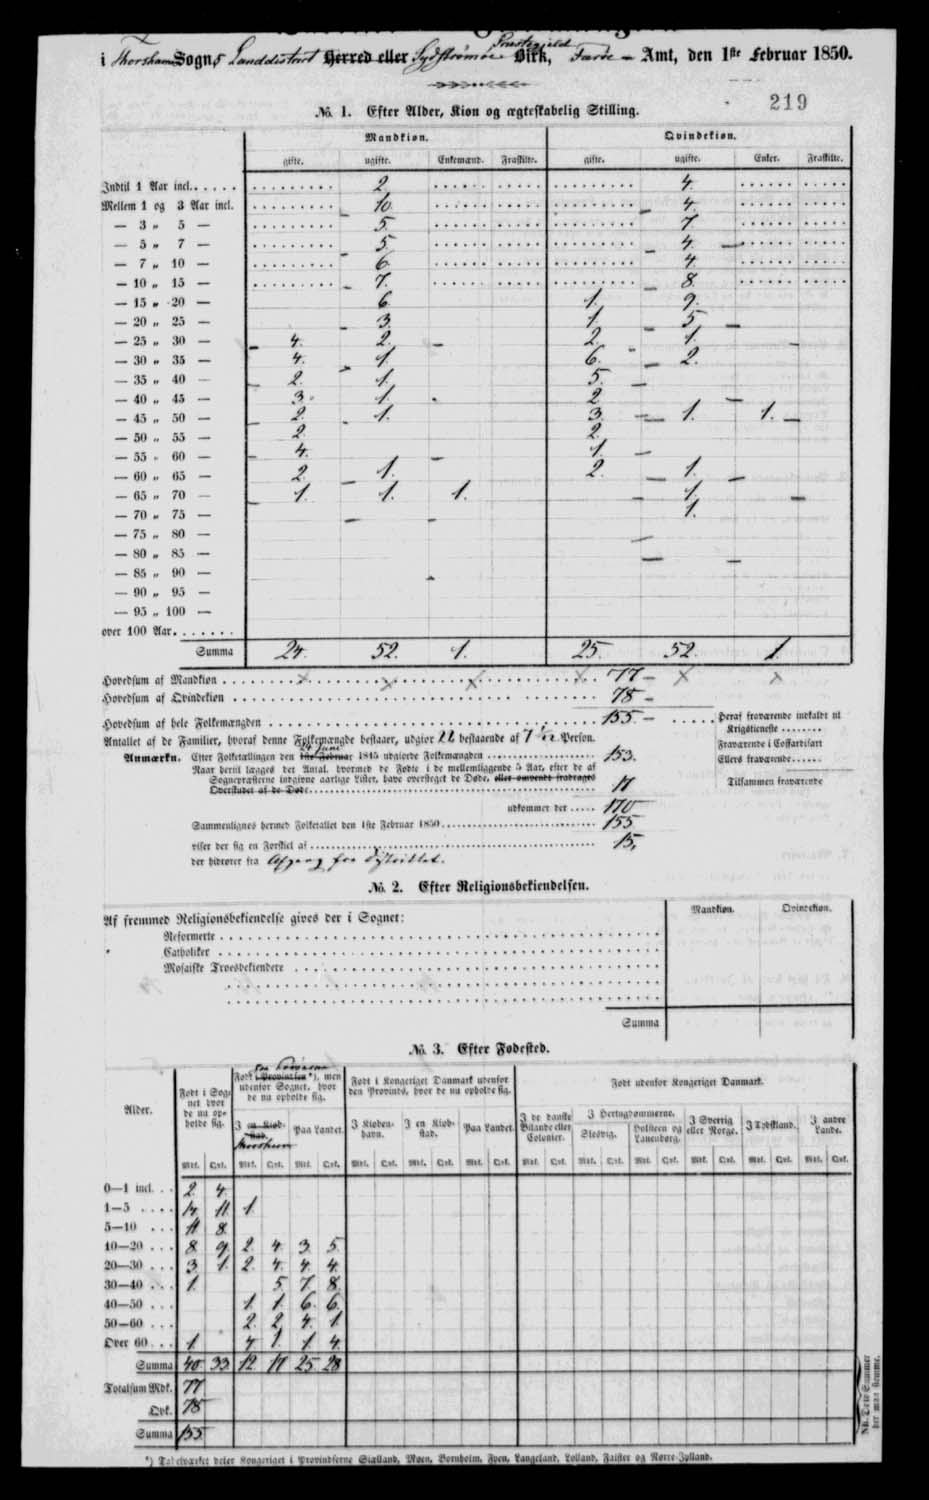 i Thorshavns Sogns Landdistrict Herred eller Sydstrømøe Præstegjeld Birk, Færøe Amt, den 1ste Februar 1850.
219
No. 1. Efter Alder, Kiøn og ægteskabelig Stilling.
Mandkiøn. Qvindekiøn.
gifte. ugifte. Enkemænd. Fraskilte. gifte. ugifte. Enker. Fraskilte.
Indtil 1 Aar incl. 2. 4.
Mellem 1 og 3 Aar incl. 10. 4.
— 3 „ 5 — 5. 7
— 5 „ 7 — 5. 4.
— 7 „ 10 — 6. 4.
— 10 „ 15 — 7. 8.
— 15 „ 20 — 6. 1. 9.
— 20 „ 25 — 3. 1. 5
— 25 „ 30 — 4. 2. 2. 1.
— 30 „ 35 — 4. 1. 6. 2.
— 35 „ 40 — 2. 1. 5.
— 40 „ 45 — 3. 1. 2
— 45 „ 50 — 2. 1. 3. 1. 1.
— 50 „ 55 — 2. 2.
— 55 „ 60 — 4. 1.
— 60 „ 65 — 2. 1. 2. 1.
— 65 „ 70 — 1. 1. 1. 1.
— 70 „ 75 — 1.
— 75 „ 80 —
— 80 „ 85 —
— 85 „ 90 —
— 90 „ 95 —
— 95 „ 100 —
over 100 Aar.
Summa 24. 52. 1. 25. 52. 1.
Hovedsum af Mandkiøn 77
Hovedsum af Qvindekiøn 78
Hovedsum af hele Folkemængden 155. Heraf fraværende indkaldt til
Krigstieneste
Antallet af de Familier, hvoraf denne Folkemængde bestaaer, udgiør 22 bestaaende af 7 1/22 Person. Fraværende i Coffardifart
24 Juni
Anmærkn. Efter Folketællingen den 1ste Februar 1845 udgiorde Folkemængden 153. Ellers fraværende
Naar dertil lægges det Antal, hvormed de Fødte i de mellemliggende 5 Aar, efter de af
Sognepræsterne indgivne aarlige Lister, have oversteget de Døde, eller omvendt fradrages
Overskudet af de Døde 17 Tilsammen fraværende
udkommer der 170
Sammenlignes hermed Folketallet den 1ste Februar 1850 155
viser der sig en Forskiel af 15,
der hidrører fra Afgang fra Distriktet.
No. 2. Efter Religionsbekiendelsen.
Mandkiøn. Qvindekiøn.
Af fremmed Religionsbekiendelse gives der i Sognet:
Reformerte
Catholiker
Mosaiske Troesbekiendere
Summa
No. 3. Efter Fødested.
Alder. Født i Sognet hvor de nu opholde sig. Født i Provindsen*), men udenfor Sognet, hvor de nu opholde sig. Født i Kongeriget Danmark udenfor den Provinds, hvor de nu opholde sig. Født udenfor Kongeriget Danmark.
I en Kiøbstad. Thorshavn Paa Landet. I Kiøbenhavn. I en Kiøbstad. Paa Landet. I de danske Bilande eller Colonier. I Hertugdommerne. Slesvig. Holsteen og Lauenborg. I Sverrig eller Norge. I Tydskland. I andre Lande.
Mdk. Qvk. Mdk. Qvk. Mdk. Qvk. Mdk. Qvk. Mdk. Qvk. Mdk. Qvk. Mdk. Qvk. Mdk. Qvk. Mdk. Qvk. Mdk. Qvk. Mdk. Qvk. Mdk. Qvk.
0—1 incl. 2. 4.
1—5 14. 11. 1.
5—10 11 8.
10—20 8. 9. 2. 4. 3. 5.
20—30 3. 1. 2. 4. 4. 4.
30—40 1. 5. 7. 8.
40—50 1. 1. 6. 6.
50—60 2. 2. 4. 1.
Over 60 1. 4. 1. 1. 4.
Summa 40. 33. 12. 17. 25. 28.
Totalsum Mdk. 77
Qvk. 78
Summa 155
NB. Dette Summer
her maa stemme.
*) Tabelværket deler Kongeriget i Provindserne Siælland, Møen, Bornholm, Fyen, Langeland, Lolland, Falster og Nørre-Jylland.